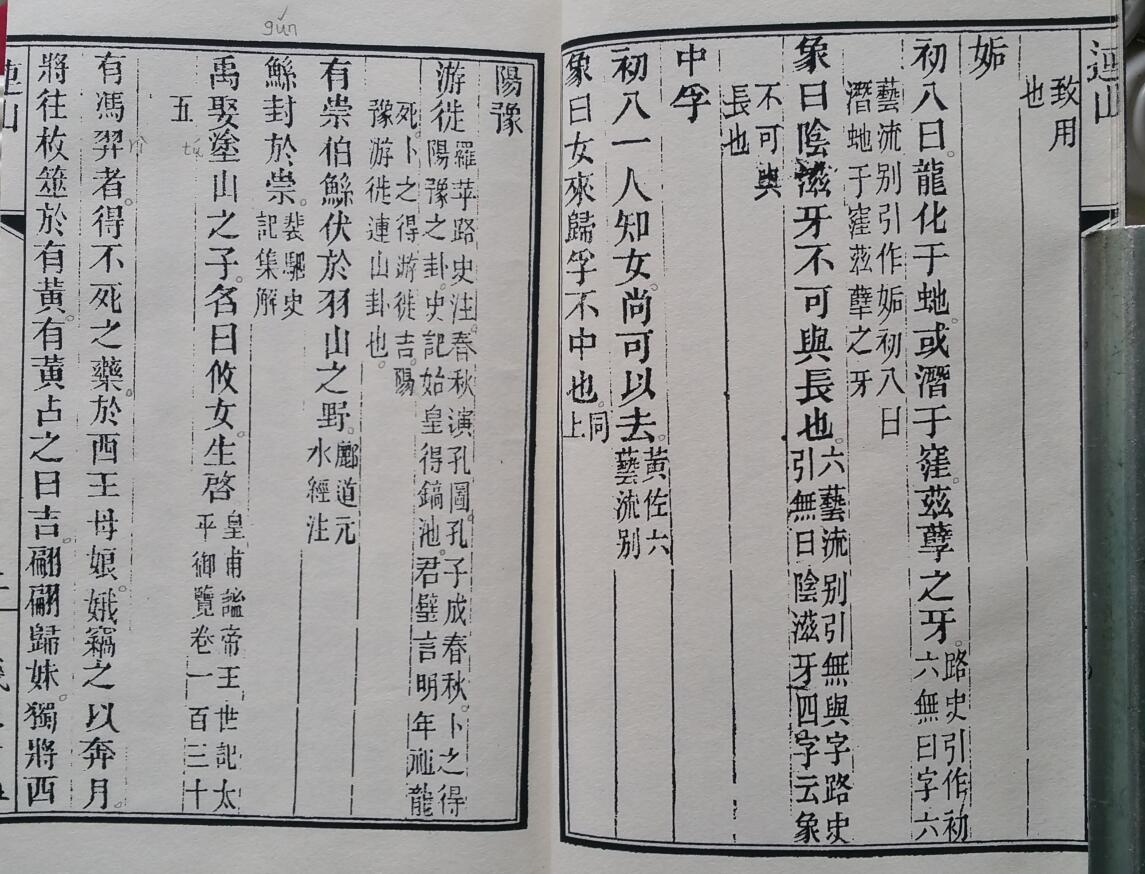 連山
致用
也
姤
初八曰龍化于虵或潛于窪茲孽之牙路史引作初
六無曰字六
藝流别引作姤初八日
潛虵于窪茲孽之牙
象曰陰滋牙不可與長也六藝流别引無與字路史
引無日陰滋牙四字云象
不可與
長也
中孚
初八一人知女尚可以去黄佐六
藝流别
象曰女來歸孚不中也同
上
gún
陽豫
游徙羅苹路史注春秋演孔圖孔子成春秋卜之得
陽豫之卦史記始皇得鎬池君璧言明年祖龍
死卜之得游徙吉陽
豫游徙連山卦也
有崇伯鯀伏於羽山之野酈道元
水經注
鯀封於崇裴駰史
記集解
禹娶塗山之子名曰攸女生啓皇甫謐帝王世記太
平御覽卷一百三十
五
tú
有馮羿者得不死之藥於西王母娘娥竊之以奔月
將往枚筮於有黄有黄占之曰吉翩翩歸妹獨將西